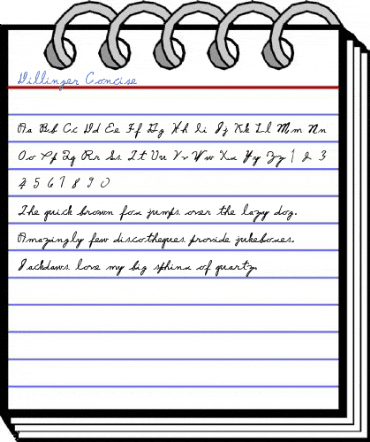 Dillinger Concise
Aa Bb Cc Dd Ee Ff Gg Hh Ii Jj Kk Ll Mm Nn
Oo Pp Qq Rr Ss Tt Uu Vv Ww Xx Yy Zz 1 2 3
4 5 6 7 8 9 0
The quick brown fox jumps over the lazy dog.
Amazingly few discotheques provide jukeboxes.
Jackdaws love my big sphinx of quartz.